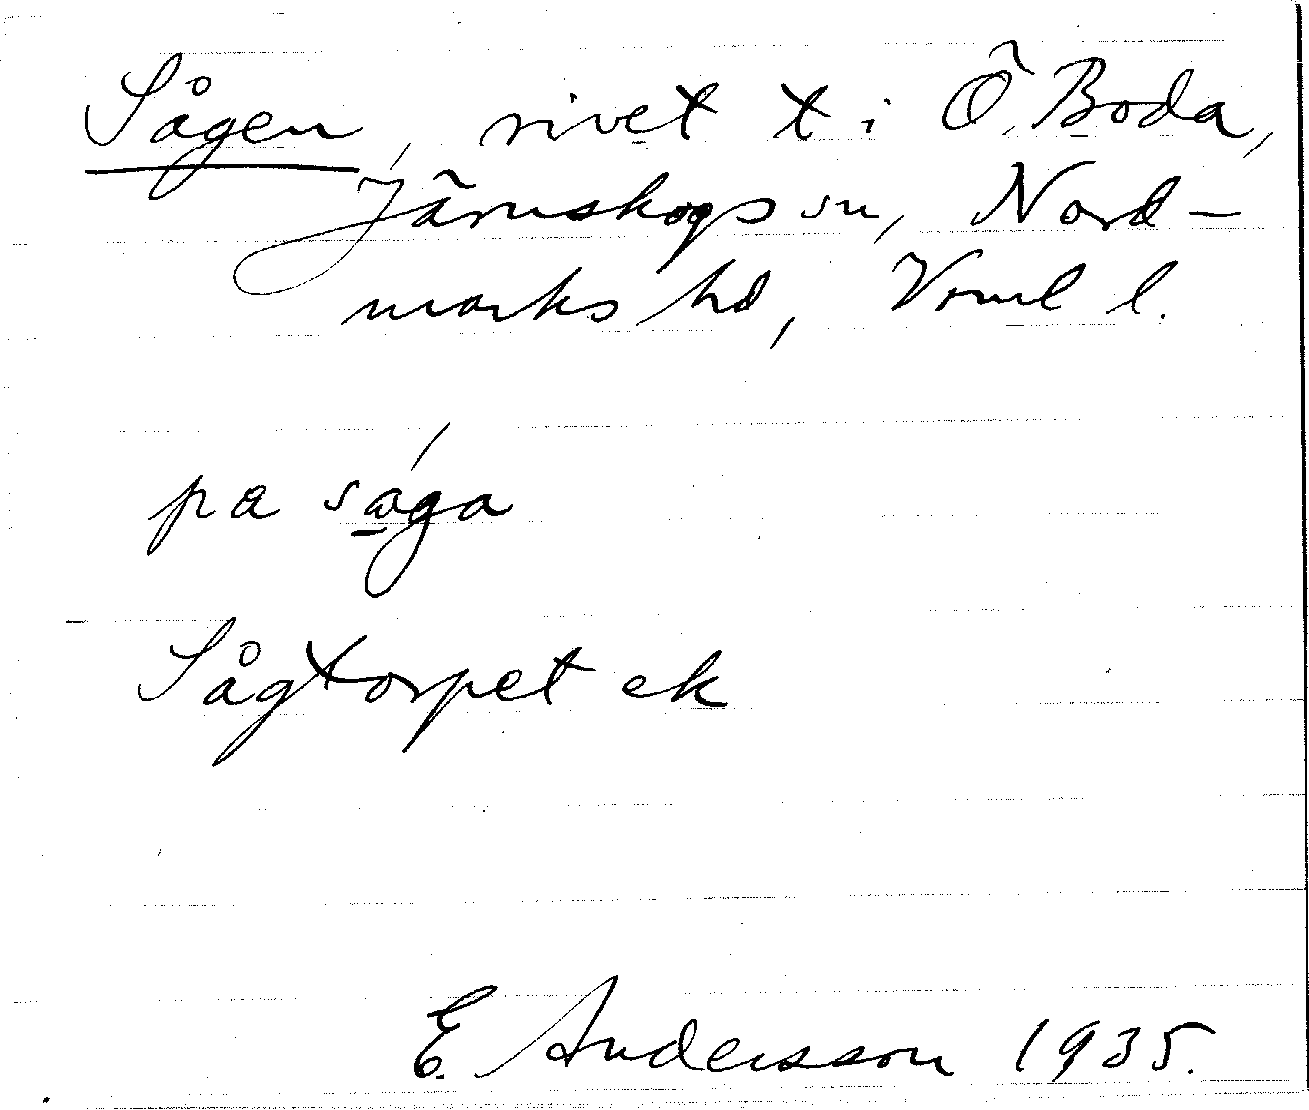 Sågen, rivet t i Ö. Boda,
Järnskogs sn, Nord-
marks hd, Vrml l.
pa sága
Sågtorpet ek
E. Andersson 1935.